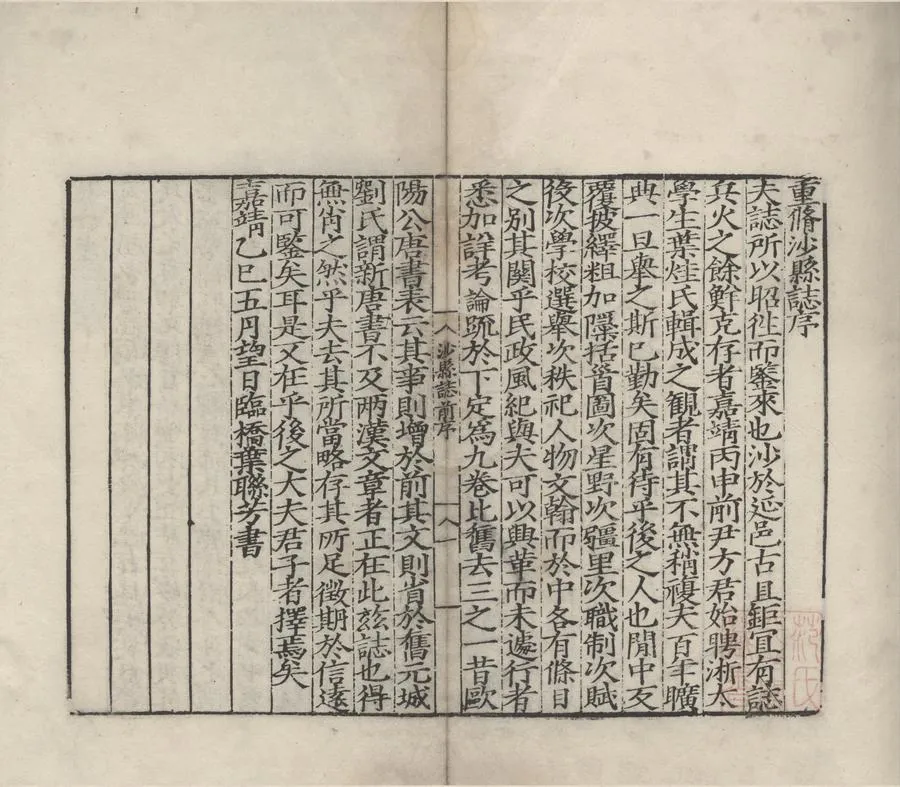 重脩沙縣誌序
夫誌所以昭徃而鑒來也沙於延邑古且鉅冝有誌
兵火之餘鮮克存者嘉靖丙申前尹方君始聘淅太
學生葉烓氏輯成之觀者謂其不無稍複夫百年曠
典一旦舉之斯已勤矣固有待乎後之人也閒中叐
覆披繹粗加隱括首圖次星野次疆里次職制次賦
役次學校選舉次秩祀人物文翰而於中各有條目
之別其關乎民政風紀與夫可以興革而未遽行者
悉加詳考論䟽於下定爲九卷比舊去三之一昔歐
沙縣誌前序
陽公唐書表云其事則增於前其文則省於舊元城
劉氏謂新唐書不及两漢文章者正在此玆誌也得
無肖之然乎夫去其所當略存其所足徵期於信遠
而可鑒矣耳是又在乎後之大夫君子者擇焉矣
嘉靖乙巳五月望日臨橋葉聯芳書